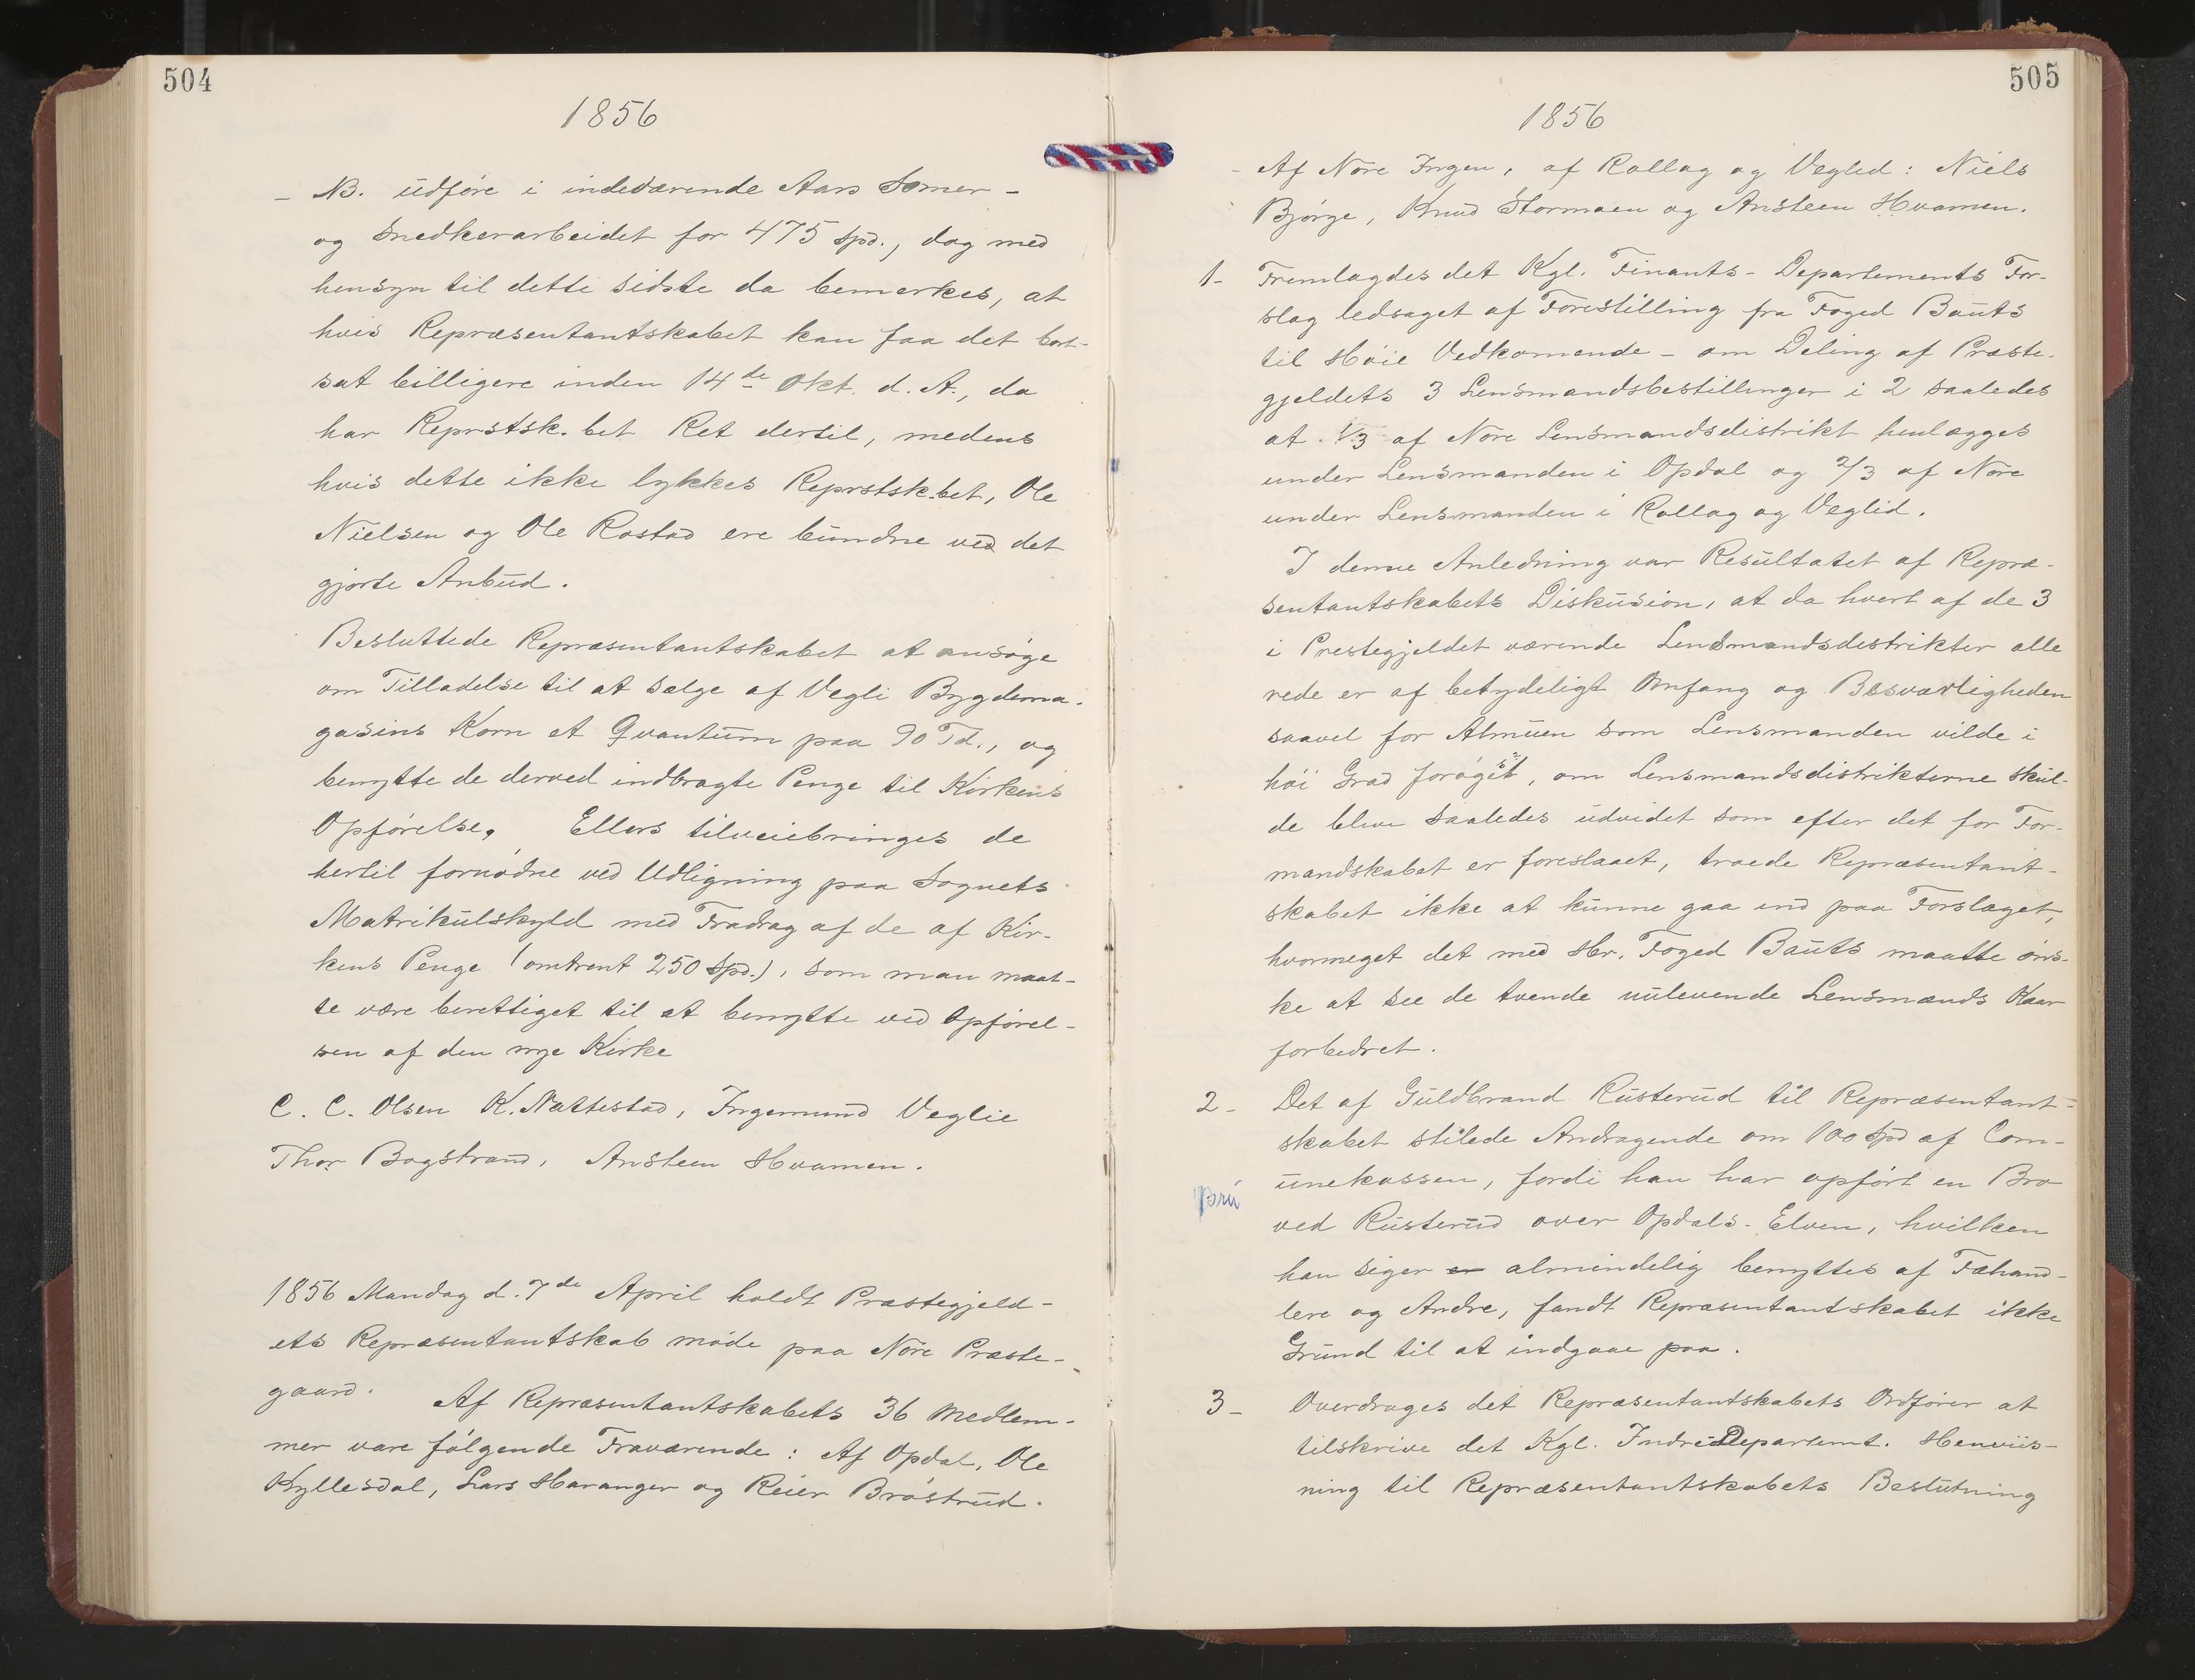 504
1856
- NB. udføre i indeværende Aars Somer -
og Snedkerarbeidet for 475 Spd., dog med
hensyn til dette sidste da bemerkes, at
hvis Repræsentantskabet kan faa det bort-
sat billigere inden 14de Okt. d. A., da
har Reprstsk.bet Ret dertil, medens
hvis dette ikke lykkes Reprstsk.bet, Ole
Nielsen og Ole Rostad ere bundne ved det
gjorte Anbud.
Besluttede Repræsentantskabet at ansøge
om Tilladelse til at sælge af Vegli Bygdema-
gasins Korn et Qvantum paa 90 Td., og
benytte de derved indbragte Penge til Kirkens
Opførelse. Ellers tilveiebringes de
hertil fornødne ved Udligning paa Sognets
Matrikulskyld med Fradrag af de af Kir-
kens Penge (omtrent 250 Spd.), som man maat-
te være berettiget til at benytte ved Opførel-
sen af den nye Kirke
C. C. Olsen K. Nattestad, Ingemund Veglie
Thor Bogstrand, Ansteen Hvamen.
1856 Mandag d. 7de April holdt Præstegjeld-
ets Repræsentantskab møde paa Nore Præste-
gaard. Af Repræsentantskabets 36 Medlem-
mer vare følgende Fraværende: Af Opdal, Ole
Kyllesdal, Lars Haranger og Reier Brøstrud.
505
1856
- Af Nore Ingen, af Rollag og Veglid: Niels
Bjørge, Knud Stormoen og Ansteen Hvamen.
1- Fremlagdes det Kgl. Finants-Departements For-
slag ledsaget af Forestilling fra Foged Bauts
til Høie Vedkomende - om Deling af Præste-
gjeldets 3 Lensmandsbestillinger i 2 saaledes
at 1/3 af Nore Lensmandsdistrikt henlægges
under Lensmanden i Opdal og 2/3 af Nore
under Lensmanden i Rollag og Veglid.
I denne Anledning var Resultatet af Repræ-
sentantskabets Diskusion, at da hvert af de 3
i Prestegjeldet værende Lensmandsdestrikter alle
rede er af betydeligt Omfang og Besværligheden
saavel for Almuen som Lensmanden vilde i
høi Grad forøget, om Lensmandsdistrikterne skul-
de blive saaledes udvidet som efter det for For-
mandskabet er foreslaaet, troede Repræsentant-
skabet ikke at kunne gaa ind paa Forslaget,
hvormeget det med Hr. Foged Bauts maatte øns-
ke at see de tvende nulevende Lensmænds Kaar
forbedret.
2- Det af Guldbrand Rusterud til Repræsentant-
skabet stilede Andragende om 100 Spd af Com-
unekassen, fordi han har opført en Bro
ved Rusterud over Opdals-Elven, hvilken
han siger er almindelig benyttes af Fæhand-
lere og Andre, fandt Repræsentantskabet ikke
Grund til at indgaae paa.
3- Overdrages det Repræsentantskabets Ordfører at
tilskrive det Kgl. Indre Departemt. Henviis-
ning til Repræsentantskabets Beslutning